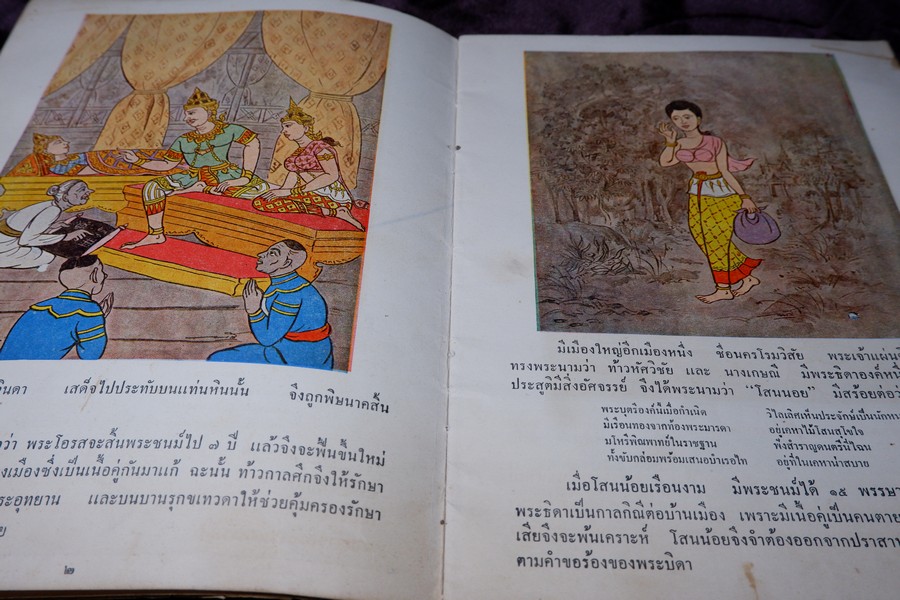 จินดา เสด็จไปประทับบนแท่นหินนั้น จึงถูกพิษนาคสั้น
ว่า พระโอรสจะสิ้นพระชนม์ไป ๗ ปี แล้วจึงจะฟื้นขึ้นใหม่
งเมืองซึ่งเป็นเนื้อคู่กันมาแก้ ฉะนั้น ท้าวกาลศึกจึงให้รักษา
ระอุทยาน และบนบานรุกขเทวดาให้ช่วยคุ้มครองรักษา
๒
มีเมืองใหญ่อีกเมืองหนึ่ง ชื่อนครโรมวิสัย พระเจ้าแผ่น
ทรงพระนามว่า ท้าวหัศวิชัย และ นางเกษณี มีพระธิดาองค์
ประสูติมีสิ่งอัศจรรย์ จึงได้พระนามว่า "โสนน้อย" มีสร้อยต่อ
พระบุตรีองค์นี้เมื่อกำเนิด วิไลเลิศเห็นประจักษ์เป็น
มีเรือนทองจากท้องพระมารดา อยู่เคหาโสนสุโขใจ
มโหรีพิณพาทย์ในราชฐาน ทั้งสำราญดนตรีนี่ไฉน
ทั้งขับกล่อมพร้อมเสนอบำเรอไท อยู่ที่ในเคหาน่าสบาย
เมื่อโสนน้อยเรือนงาม มีพระชนม์ได้ ๑๕ พรรษา
พระธิดาเป็นกาลกิณีต่อบ้านเมือง เพราะมีเนื้อคู่เป็นคนตาย
เสียจึงจะพ้นเคราะห์ โสนน้อยจึงจำต้องออกจากปราสาท
ตามคำขอร้องของพระบิดา